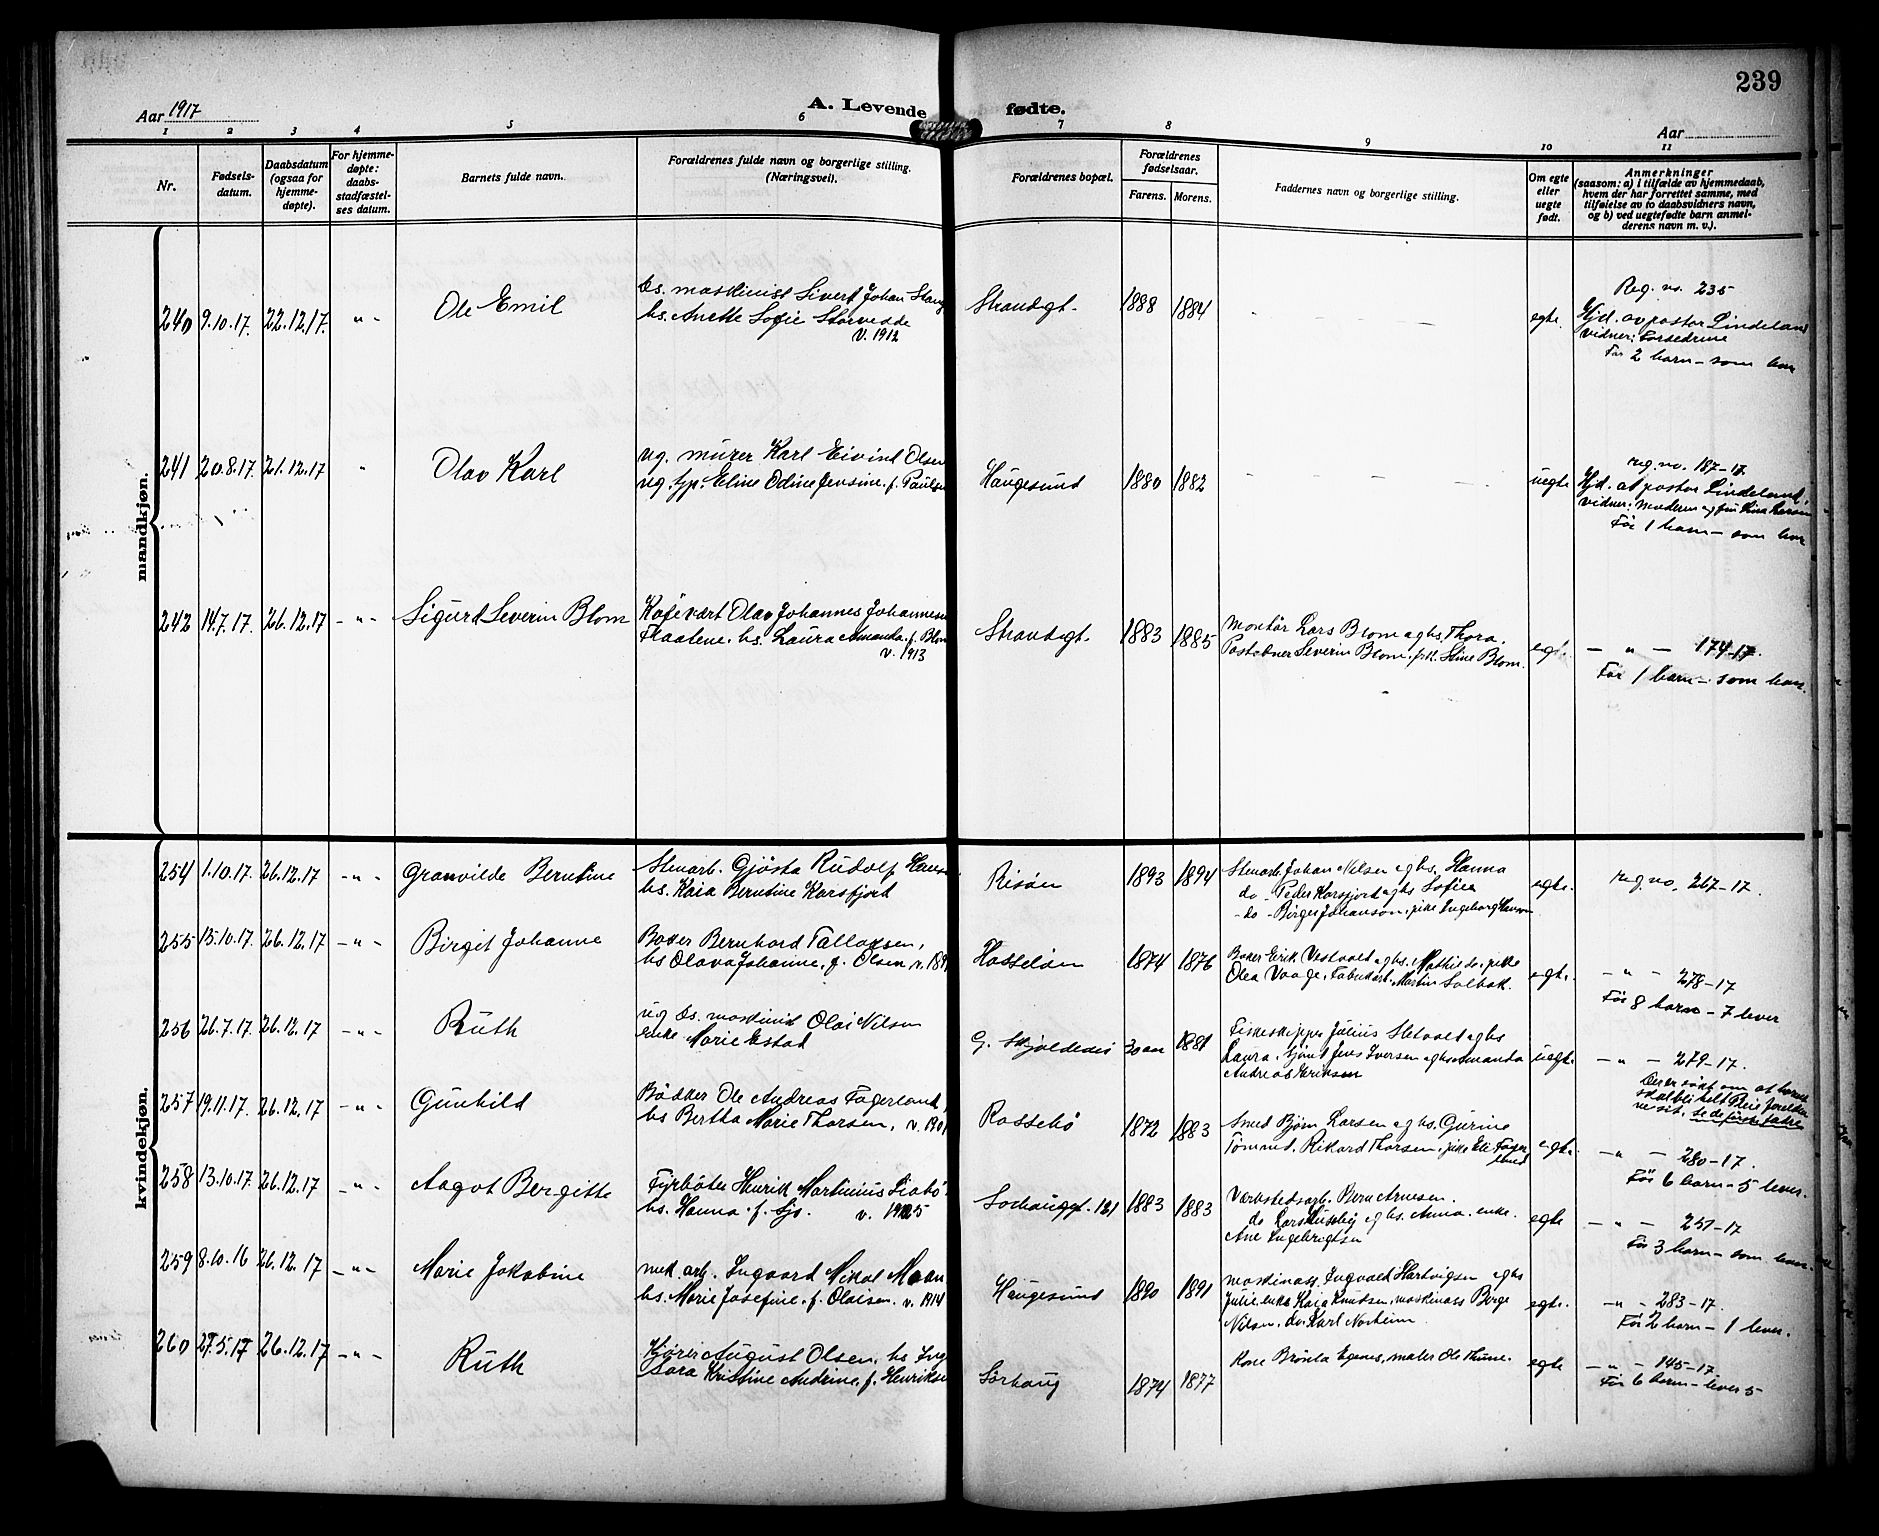 239
Aar 1917
A. Levende fødte.
Aar
1 2 3 4 5 6 7 8 9 10 11
Nr.
Fødsels-
datum.
Daabsdatum
(ogsaa for
hjemme-
døpte).
For hjemme-
døpte:
daabs-
stadfæstel-
ses datum.
Barnets fulde navn.
Forældrenes fulde navn og borgerlige stilling.
(Næringsvei).
Forældrenes bopæl.
Forældrenes
fødselsaar.
Farens. Morens.
Faddernes navn og borgerlige stilling.
Om egte
eller
uegte
født.
Anmerkninger
(saasom: a) i tilfælde av hjemmedaab,
hvem der har forrettet samme, med
tilføielse av to daabsvidners navn,
og b) ved uegtefødte barn anmel-
derens navn m. v.).
mandkjøn.
240 9.10.17. 22.12.17. -"- Ole Emil
ds. maskinist Sivert Johan
hs. Anette Sofie Storvedde
v. 1912
Strandgt. 1888 1884 - - - egte.
Reg. no. 235
Hjd. av pastor Lindeland
vidner:
Før 2 barn - som lever
241 20.8.17 21.12.17 " Olav Karl
ug. murer Karl Eivind Olsen
ug. tjp. Eline Odine Jensine. f. Paulsen
Haugesund 1880 1882 - - - uegte
reg. no. 187-17
Hjd. af pastor Lindeland.
vidner: moderen og
Før 1 barn - som lever
242 14.7.17. 26.12.17 -"- Sigurd Severin Blom
Kafevært Olav Johannes Johannesen
Flaatene. hs. Laura Amanda. f. Blom
v. 1913
Strandgt. 1883 1885
Montør Lars Blom og hs. Thora.
Severin Blom. pk. Stine Blom.
egte.
- " - 174-17.
Før 1 barn - som lever.
kvindekjøn.
254 1.10.17. 26.12.17 -"- Granvilde Berntine
Stenarb. Gjøsta Rudolf
hs. Kaia Berntine Korsfjort
Risøen 1893 1894
Stenarb. Johan Nilsen og hs. Hanna
do - Peder Korsfjort og hs Sofie
- do - Birger Johanson, pike Ingeborg Hansen
egte.
reg. no. 267-17.
255 15.10.17. 26.12.17 -"- Birgit Johanne
Baker Bernhard Tallaksen,
hs Olava Johanne, f. Olsen
Hasseløen 1874 1876
Baker Eirik Vestvolt og hs. Mathilde. pike
Olea Vaage. Martin Solbak.
egte.
- " - 278-17
Før 8 barn - 7 lever
256 26.7.17. 26.12.17 -"- Ruth
ug ds. maskinist Olai Nilsen
enke Marie Estad
G. Skjoldevei 30 aar 1881
Fiskeskipper Julius Sletvolt og hs
Laura. Sjømd Jens Iversen og hs Amanda
Andreas Eriksen
uegte.
- " - 279-17.
257 19.11.17. 26.12.17 -"- Gunhild
Bødker Ole Andreas Fagerland,
hs Bertha Marie Thorsen, v. 1901
Rossebø 1872 1883
Smed Bjørn Larsen og hs. Gurine
Tømmd. Rikard Thorsen, pike Eli Fager-
land
egte.
- " - 280-17.
Før 6 barn - 5 lever.
258 13.10.17 26.12.17 -"- Aagot Bergitte
Fyrbøter Henrik Martinius
hs. Hanna. f.
Sorhauggt. 121 1883 1883
Værkstedsarb. Bern Arnesen.
do Lars og hs. Anna. enke.
Ane Ingebrigtsen
egte
- " - 251-17
Før 3 barn - som lever.
259 8.10.16 26.12.17 -"- Marie Jakobine
mek. arb. Ingvard Nikol
hs. Marie Josefine. f. Olaisen. v. 1914
Haugesund 1890 1891
maskinass. Ingvald Hartvigsen og hs
Julie. enke Kaja Knudsen, maskinass Birge
Nilsen, do Karl Norheim
egte.
-"- 283-17.
Før 2 barn - 1 lever.
260 27.5.17 26.12.17 -"- Ruth
Kjører August Olsen, hs
Kristine Andrine, f. Henriksen
Sørhaug 1874 1877
Kone Brønla Egenes, maler Ole Thune.
egte
- " - 145-17.
Før 6 barn - lever 5